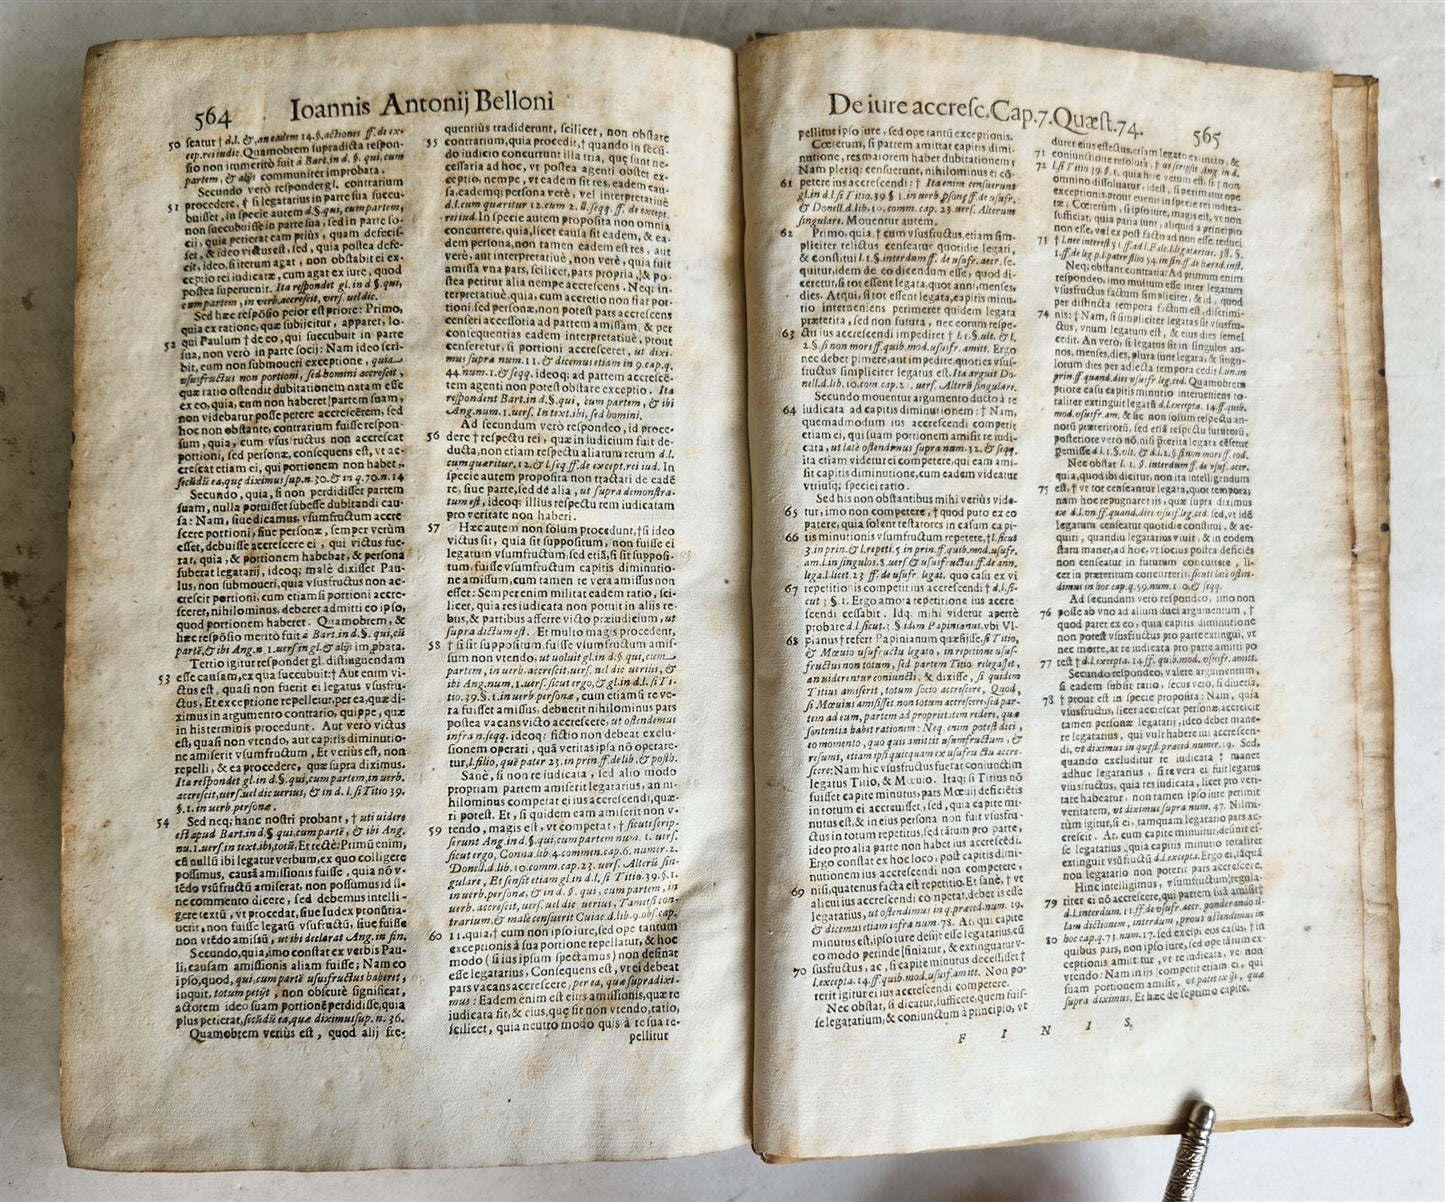 564 Ioannis Antonij Belloni
50 seatur † d.l. & an eadem 14. §. actiones ff. de ex-
cep. rei iudic. Quamobrem supradicta respon-
sio non immeritò fuit à Bart. in d. §. qui, cum
partem, & alijs communiter improbata.
Secundo verò respondet gl. contrarium
51 procedere, † si legatarius in parte sua succu-
buisset, in specie autem d. §. qui, cum partem,
non succubuisse in parte sua, sed in parte so-
cij, quia petierat eam priùs, quam defecis-
set, & ideo victus est, sed, quia postea defe-
cit, ideo, si iterum agat, non obstabit ei ex-
ceptio rei iudicatæ, cum agat ex iure, quod
postea superuenit. Ita respondet gl. in d. §. qui,
cum partem, in verb. accrescit, vers. uel dic.
Sed hæc respõsio peior est priore: Primo,
quia ex ratione, quæ subijcitur, apparet, lo-
52 qui Paulum † de eo, qui succubuit in parte
sua, non verò in parte socij: Nam ideo scri-
bit, eum non submoueri exceptione, quia
ususfructus non portioni, sed homini accrescit,
quæ ratio ostendit dubitationem natam esse
ex eo, quia, cum non haberet partem suam,
non videbatur posse petere accrescẽtem, sed
hoc non obstante, contrarium fuisse respon-
sum, quia, cum vsusfructus non accrescat
portioni, sed personæ, consequens est, vt ac-
crescat etiam ei, qui portionem non habet,
secũdũ ea, que diximus sup. n. 30. & in q. 70. n. 14
Secundo, quia, si non perdidisset partem
suam, nulla potuisset subesse dubitandi cau-
sa: Nam, siue dicamus, vsumfructum accre
scere portioni, siue personæ, semper verùm
esset, debuisse accrescere ei, qui victus fue-
rat, quia, & portionem habebat, & persona
suberat legatarij, ideoq; malè dixisset Pau-
lus, non submoueri, quia vsusfructus non ac-
crescit portioni, cum etiam si portioni accre-
sceret, nihilominus, deberet admitti eo ipso,
quod portionem haberet. Quamobrem, &
hæc respõsio meritò fuit à Bart. in d. §. qui, cũ
partẽ, & ibi Ang. n. 1. vers. in gl. & alijs improbata.
Tertio igitur respondet gl. distinguendam
53 esse causam, ex qua succubuit: † Aut enim vi-
ctus est, quasi non fuerit ei legatus vsusfru-
ctus, Et exceptione repelletur, per ea, quæ di-
ximus in argumento contrario, quippe, quæ
in histerminis procedunt. Aut verò victus
est, quasi non vtendo, aut capitis diminutio-
ne amiserit vsumfructum, Et verius est, non
repelli, & ea procedere, quæ supra diximus.
Ita respondet gl. in d. §. qui, cum partem, in uerb.
accrescit, uers. uel dic uerius, & in d. l. si Titio 39.
§. 1. in uerb. personæ.
54 Sed neq; hanc nostri probant, † uti uidere
est apud Bart. in d. § qui, cum partẽ, & ibi Ang.
nu. 1. uers. in text. ibi, totũ, Et rectè: Primũ enim,
cũ nullũ ibi legatur verbum, ex quo colligere
possimus, causã amissionis fuisse, quia nõ v-
tẽdo vsũfructũ amiserat, non possumus id si-
ne commento dicere, sed debemus intelli-
gere textũ, vt procedat, siue Iudex pronũtia-
uerit, non fuisse legatũ vsũfructũ, siue fuisse
non vtẽdo amissũ, ut ibi declarat Ang. in fin.
Secundo, quia, imo constat ex verbis Pau-
li, causam amissionis aliam fuisse; Nam eo
ipso, quod, qui, cum partẽ ususfructus haberet,
inquit, totum petijt, non obscurè significat,
actorem ideo suam portionẽ perdidisse, quia
plus petierat, secũdũ ea, quæ diximus sup. n. 36.
Quamobrem veriùs est, quod alij fre-
quentiùs tradiderunt, scilicet, non obstare
55 contrarium, quia procedit, † quando in secũ-
do iudicio concurrunt illa tria, quę sunt ne-
cessaria ad hoc, vt postea agenti obstet ex-
ceptio, nempe, vt eadem sit res, eadem cau-
sa, eademq; persona verè, vel interpretatiuè
d.l. cum quæritur 12. cum 2. ll. seqq. ff. de except.
rei iud. In specie autem proposita non omnia
concurrere, quia, licet causa sit eadem, & ea-
dem persona, non tamen eadem est res, aut
verè, aut interpretatiuè, non verè, quia fuit
amissa vna pars, scilicet, pars propria, & po-
stea petitur alia nempe accrescens. Neq; in-
terpretatiuè, quia, cum accretio non fiat por-
tioni, sed personæ, non potest pars accrescens
censeri accessoria ad partem amissam, & per
consequentias eadem interpretatiuè, prout
censeretur, si portioni accresceret, ut dixi-
mus supra num. 11. & dicemus etiam in 9. cap. q.
44. num. 1. & seqq. ideoq; ad partem accrescẽ-
tem agenti non potest obstare exceptio. Ita
respondent Bart. in d. §. qui, cum partem, & ibi
Ang. num. 1. uers. In text. ibi, sed homini.
Ad secundum verò respondeo, id proce-
56 dere † respectu rei, quæ in iudicium fuit de-
ducta, non etiam respectu aliarum rerum d.l.
cum quæritur. 12. & l. seq. ff. de except. rei iud. In
specie autem proposita non tractari de eadẽ
re, siue parte, sed de alia, ut supra demonstra-
tum est, ideoq; illius respectu rem iudicatam
pro veritate non haberi.
57 Hæc autem non solum procedunt, † si ideo
victus sit, quia sit suppositum, non fuisse ei
legatum vsumfructum, sed etiã, si sit supposi-
tum, fuisse vsumfructum capitis diminutio-
ne amissum, cum tamen re vera amissus non
esset: Semper enim militat eadem ratio, sci-
licet, quia res iudicata non potuit in alijs re-
bus, & partibus afferre victo præiudicium, ut
supra dictum est. Et multo magis procedent,
58 † si sit suppositum, fuisse vsumfructum amis-
sum non vtendo, ut uoluit gl. in d. § qui, cum
partem, in uerb. accrescit, uers. uel dic uerius, &
ibi Ang. num. 1. uers. sicut ergo, & gl. in d. l. si Ti-
tio. 39. §. 1. in uerb. personæ, cum etiam si re ve-
ra fuisset amissus, debuerit nihilominus pars
postea vacans victo accrescere, ut ostendemus
infra n. seqq. ideoq; fictio non debeat exclu-
sionem operari, quã veritas ipsa nõ operare-
tur, l. filio, quẽ pater 23. in prin. ff. de lib. & postb.
Sanè, si non re iudicata, sed alio modo
propriam partem amiserit legatarius, an ni-
hilominus competat ei ius accrescendi, quæ-
ri potest. Et, si quidem eam amiserit non v-
59 tendo, magis est, vt competat, † sicuti scrip-
serunt Ang. in d. §. qui, cum partem num. 1. uers.
sicut ergo, Conna. lib. 4. commen. cap. 6. numer. 2.
Donell. d. lib. 10. comm. cap. 23. uers. Alterũ sin-
gulare, Et sensit etiam gl. in d. l. si Titio. 39. §. 1.
in uerb. personæ, & in d. §. qui, cum partem, in
uerb. accrescit, uers. uel dic uerius, Tametsi con-
trarium, & male censuerit Cuiac. d. lib. 9. obs. cap.
60 11. quia, † cum non ipso iure, sed ope tantum
exceptionis à sua portione repellatur, & hoc
modo (si ius ipsum spectamus) non desinat
esse legatarius, Consequens est, vt ei debeat
pars vacans accrescere, per ea, quæ supra dixi-
mus: Eadem enim est eius amissionis, quæ re
iudicata fit, & eius, quę fit non vtendo, ratio,
scilicet, quia neutro modo quis à re sua re-
pellitur
De iure accresc. Cap. 7. Quæst. 74. 565
pellitur ipso iure, sed ope tantũ exceptionis.
Cœterum, si partem amittat capitis dimi-
nutione, res maiorem habet dubitationem;
Nam pleriq; censuerunt, nihilominus ei cõ-
61 petere ius accrescendi: † Ita enim censuerunt
gl. in d. l. si Titio. 39 § 1. in uerb. psonę ff. de usufr.
& Donell. d. lib. 10. comm. cap. 23. uers. Alterum
singulare. Mouentur autem.
62 Primo, quia, † cum vsusfructus, etiam sim-
pliciter relictus censeatur quotidie legari,
& constitui l. 1. §. interdum ff. de usufr. accr. se-
quitur, idem de eo dicendum esse, quod di-
ceretur, si tot essent legata, quot anni, menses,
dies. Atqui, si tot essent legata, capitis minu-
tio interueniens perimeret quidem legata
præterita, sed non futura, nec eorum respe-
63 ctu ius accrescendi impediret † l. 1. §. ult. & l.
2. §. si non mors ff. quib. mod. ususfr. amitt. Ergo
nec debet pimere, aut impedire, quoties vsus-
fructus simpliciter legatus est. Ita arguit Do-
nell. d. lib. 10. com cap. 23. uers. Alterũ singulare.
Secundo mouentur argumento ducto à re
64 iudicata ad capitis diminutionem: † Nam,
quemadmodum ius accrescendi competit
etiam ei, qui suam portionem amisit re iudi-
cata, ut latè ostendimus supra num. 32. & seqq.
ita etiam videtur ei competere, qui eam ami-
sit capitis diminutione, cum eadem videatur
vtriusq; speciei ratio.
Sed his non obstantibus mihi veriùs vide-
65 tur, imo non competere, † quod puto ex eo
patere, quia solent testatores in casum capi-
66 tis minutionis vsumfructum repetere, † l. sicut
3. in prin. & l. repeti. 5 in prin. ff. quib. mod. usufr.
am. l. in singulos. 8. uers & ususfructus ff. de ann.
lega. l. licet. 23 ff. de usufr. legat. quo casu ex vi
67 repetitionis competit ius accrescendi † d. l. si-
cut 3 §. 1. Ergo amota repetitione ius accre-
scendi cessabit. Idq. mihi videtur apertè
probare d. l. sicut. 3. §. idem Papinianus. vbi Vl-
68 pianus † refert Papinianum quæsijsse, si Titio,
& Mœuio usufructu legato, in repetitione usus-
fructus non totum, sed partem Titio relegasset,
an uiderentur coniuncti, & dixisse, si quidem
Titius amiserit, totum socio accrescere, Quod,
si Mœuius amisisset non totum accrescere, sed par-
tem ad eum, partem ad proprietatem redire, quæ
sententia habet rationem: Neq. enim potest dici,
eo momento, quo quis amittit usumfructum, &
resumit, etiam ipsi quicquam ex usufructu accre-
scere: Nam hic vsusfructus fuerat coniunctim
legatus Titio, & Mœuio. Itaq; si Titius nõ
fuisset capite minutus, pars Mœuij deficiẽtis
in totum ei accreuisset, sed, quia capite mi-
nutus est, & in eius persona non fuit vsusfru-
ctus in totum repetitus, sed tãtum pro parte,
ideo pro alia parte non habet ius accrescẽdi.
Ergo constat ex hoc loco, post capitis dimi-
nutionem ius accrescendi non competere,
69 nisi, quatenus facta est repetitio. Et sanè, † vt
alicui ius accrescendi competat, debet is esse
legatarius, ut ostendimus in q. præced. num. 19.
& dicemus etiam infra num. 78. At, qui capite
minutus est, ipso iure desijt esse legatarius, cũ
eo modo perinde finiatur, & extinguatur v-
70 susfructus, ac, si capite minutus decessisset †
l. excepta. 14. ff. quib. mod. ususf. amitt. Non po-
terit igitur ei ius accrescendi competere.
Nec obstat, si dicatur, sufficere, quem fuis-
se legatarium, & coniunctum à principio, vt
duret eius effectus, etiam legato extincto, &
71 coniunctione resoluta, † ut scripsit Ang. in d.
72 l. si Titio 39. §. 1. quia hoc verum est, si † non
omnino dissoluatur, idest, si perimatur ope
exceptionis, prout euenit in specie rei iudica-
tæ: Cœterum, si ipso iure, magis est, vt non
sufficiat, quia paria sunt, aliquid à principio
non esse, vel ex post facto ad non esse reduci
73 † l. nec interest 51. ff. ad l. Falc. l. legatarius. 38. §.
1. ff. de leg. p. l. pater filio 54. in fin. ff. de hered. inst.
Neq; obstant contraria: Ad primum enim
respondeo, imo multum esse inter legatum
vsusfructus factum simpliciter, & id, quod
per distincta tempora factum est, discrimi-
74 nis: † Nam, si simpliciter legatus sit vsusfru-
ctus, vnum legatum est, & eius dies semel
cedit. An verò, si legatus sit in singulos an-
nos, menses, dies, plura sunt legata, & singu-
lorum dies per adiecta tempora cedit l. un. in
prin. ff. quand. dies usufr. leg. ced. Quamobrem
priore casu capitis minutio interueniens to-
taliter extinguit legatũ d. l. excepta. 14. ff. quib.
mod. ususfr. am. & sic non solum respectu an-
norũ præteritorũ, sed etiã respectu futurorũ,
posteriore verò nõ, nisi p̃terita legata cẽsetur
p̃emisse d. l. 1. §. ult. & d. l. 2. § si non mors ff. eod.
Nec obstat l. 1. §. interdum ff. de usuf. accr.
quia, quod ibi dicitur, non ita intelligendum
75 est, † vt tot censeantur legata, quot tempora;
nam hoc repugnaret iis, quæ supra diximus
ex d. l. un. ff. quand. dies usuf. leg. ced. sed, vt idẽ
legatum censeatur quotidie constitui, & ac-
quiri, quandiu legatarius viuit, & in eodem
statu manet, ad hoc, vt socius postea deficiẽs
non censeatur in futurum concurrere, li-
cet in præteritum concurrerit, sicuti latè osten-
dimus in hoc cap. q. 59. num. 1. & seqq.
Ad secundum verò respondeo, imo non
76 posse ab vno ad alium duci argumentum, †
quod patet ex eo, quia capitis diminutione
non potest vsusfructus pro parte extingui, vt
nec morte, at re iudicata pro parte amitti po
77 test † d. l. excepta. 14. ff. quib. mod. ususfr. amitt.
Secundo respondeo, valere argumentum,
si eadem subsit ratio, secus verò, si diuersa,
78 † prout est in specie proposita: Nam, quia
vsusfructus, licet accrescat personæ, accrescit
tamen personæ legatarij, ideo debet mane-
re legatarius, qui vult habere ius accrescen-
di, ut diximus in quæst. præced. numer. 19. Sed,
quando excluditur re iudicata † manet
adhuc legatarius, si re vera ei fuit legatus
vsusfructus, quia res iudicata, licet pro veri-
tate habeatur, non tamen ipso iure perimit
veritatem, ut diximus supra num. 47. Nil mi-
rùm igitur, si ei, tamquam legatario pars ac-
crescit. At, cum capite minuitur, desinit es-
se legatarius, quia capitis minutio totaliter
extinguit vsũfructũ d. l. excepta. Ergo ei, tãquã
non legatario non poterit pars accrescere.
Hinc intelligimus, vsumfructum, regula-
79 riter ei nõ accrescere, qui partem suã amisit †
d. l. interdum. 11. ff. de usufr. accr. ponderando il-
lam dictionem, interdum, prout ostendimus in
80 hoc cap. q. 73. num. 17. sed excipi eos casus, † in
quibus pars, non ipso iure, sed ope tãtum ex-
ceptionis amittitur, vt re iudicata, vel non
vtendo: Nam in ijs competit etiam ei, qui
suam portionem amisit, ut patet ex ijs, quæ
supra diximus. Et hæc de septimo capite.
F I N I S.